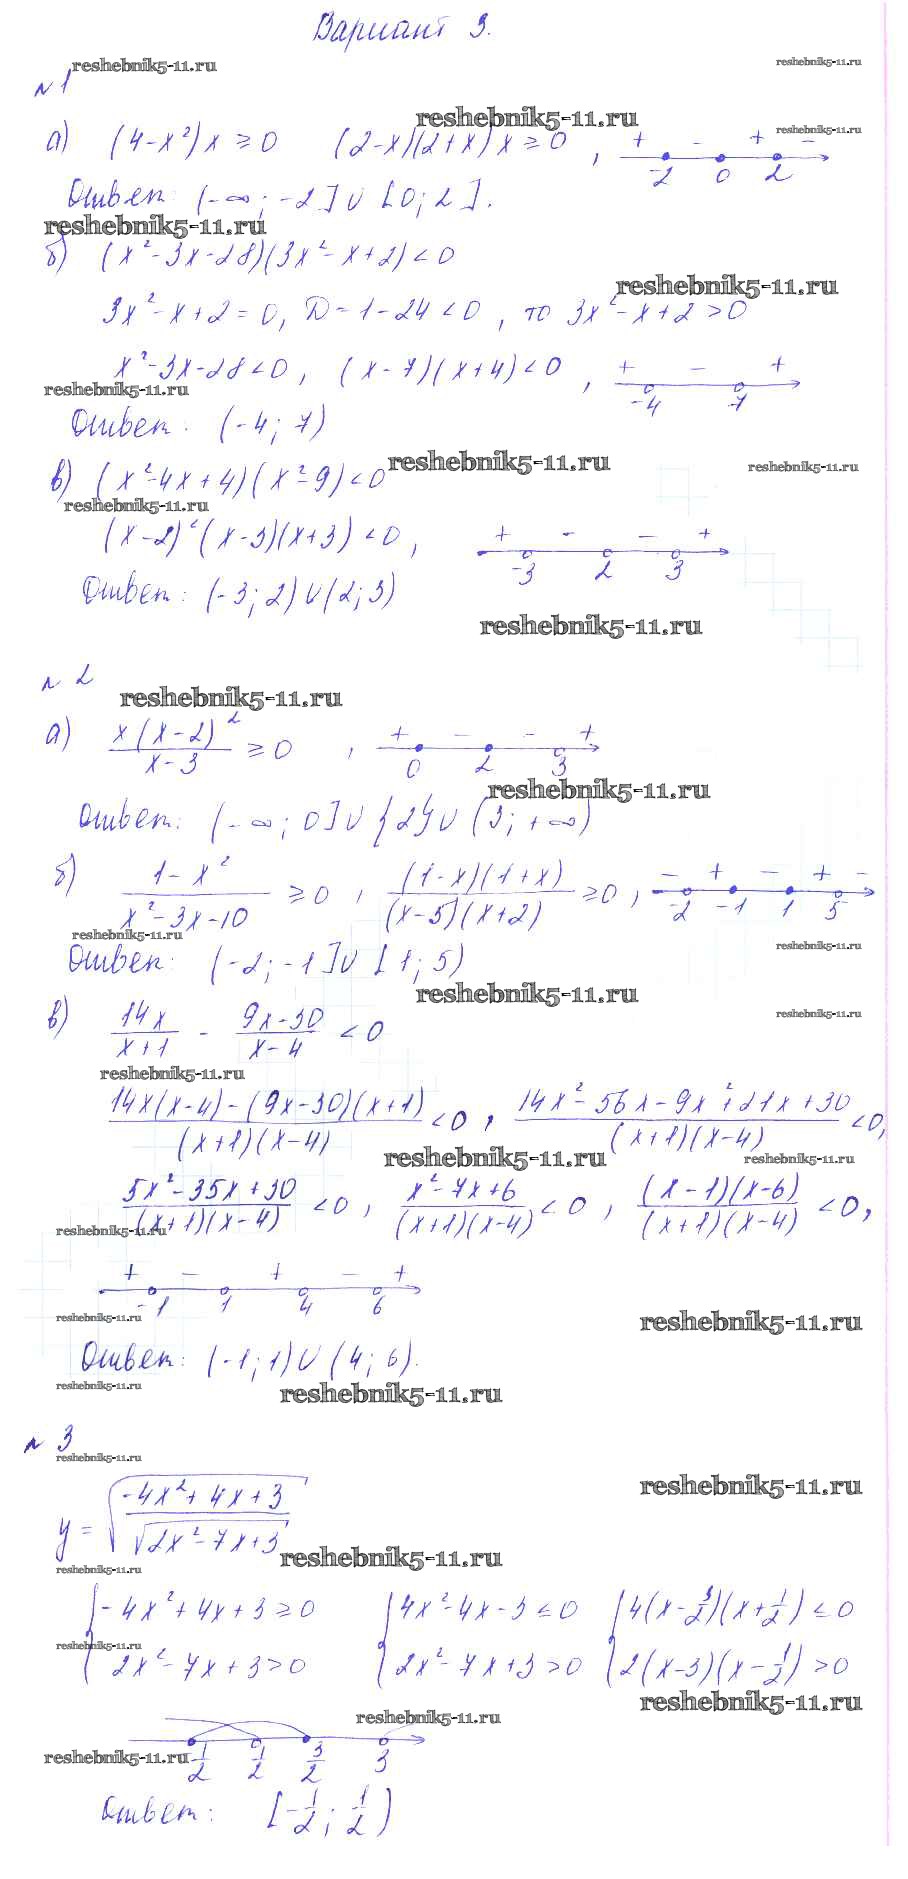 Вариант 3.
reshebnik5-11.ru reshebnik5-11.ru
№ 1
reshebnik5-11.ru
reshebnik5-11.ru
а) (4-x²)x ≥ 0 (2-x)(2+x)x ≥ 0 , + - + -
-2 0 2
Ответ: (-∞; -2] ∪ [0; 2].
reshebnik5-11.ru
б) (x²-3x-28)(3x²-x+2) < 0
reshebnik5-11.ru
3x²-x+2=0, D=1-24<0 , то 3x²-x+2>0
x²-3x-28<0 , (x-7)(x+4)<0 , + - +
-4 7
reshebnik5-11.ru
Ответ: (-4; 7)
reshebnik5-11.ru reshebnik5-11.ru
в) (x²-4x+4)(x²-9)<0
reshebnik5-11.ru
(x-2)²(x-3)(x+3)<0 , + - - +
-3 2 3
Ответ: (-3; 2)∪(2; 3)
reshebnik5-11.ru
№ 2
reshebnik5-11.ru
а) x(x-2)²/x-3 ≥ 0 , + - - +
0 2 3
reshebnik5-11.ru
Ответ: (-∞; 0]∪{2}∪(3; +∞)
б) 1-x²/x²-3x-10 ≥ 0 , (1-x)(1+x)/(x-5)(x+2) ≥ 0 , - + - + -
-2 -1 1 5
reshebnik5-11.ru reshebnik5-11.ru
Ответ: (-2; -1]∪[1; 5)
reshebnik5-11.ru reshebnik5-11.ru
в) 14x/x+1 - 9x-30/x-4 < 0
reshebnik5-11.ru
14x(x-4)-(9x-30)(x+1)/(x+1)(x-4) < 0 , 14x²-56x-9x²+21x+30/(x+1)(x-4) < 0,
reshebnik5-11.ru reshebnik5-11.ru
5x²-35x+30/(x+1)(x-4) < 0 , x²-7x+6/(x+1)(x-4) < 0 , (x-1)(x-6)/(x+1)(x-4) < 0,
reshebnik5-11.ru
+ - + - +
-1 1 4 6
reshebnik5-11.ru reshebnik5-11.ru
Ответ: (-1; 1)∪(4; 6).
reshebnik5-11.ru reshebnik5-11.ru
№ 3
reshebnik5-11.ru reshebnik5-11.ru
y = √(-4x²+4x+3/√(2x²-7x+3))
reshebnik5-11.ru
reshebnik5-11.ru
{-4x²+4x+3≥0 {4x²-4x-3≤0 {4(x-3/2)(x+1/2)≤0
reshebnik5-11.ru
2x²-7x+3>0 2x²-7x+3>0 2(x-3)(x-1/2)>0
reshebnik5-11.ru
reshebnik5-11.ru
reshebnik5-11.ru -1/2 1/2 3/2 3
Ответ: [-1/2; 1/2)